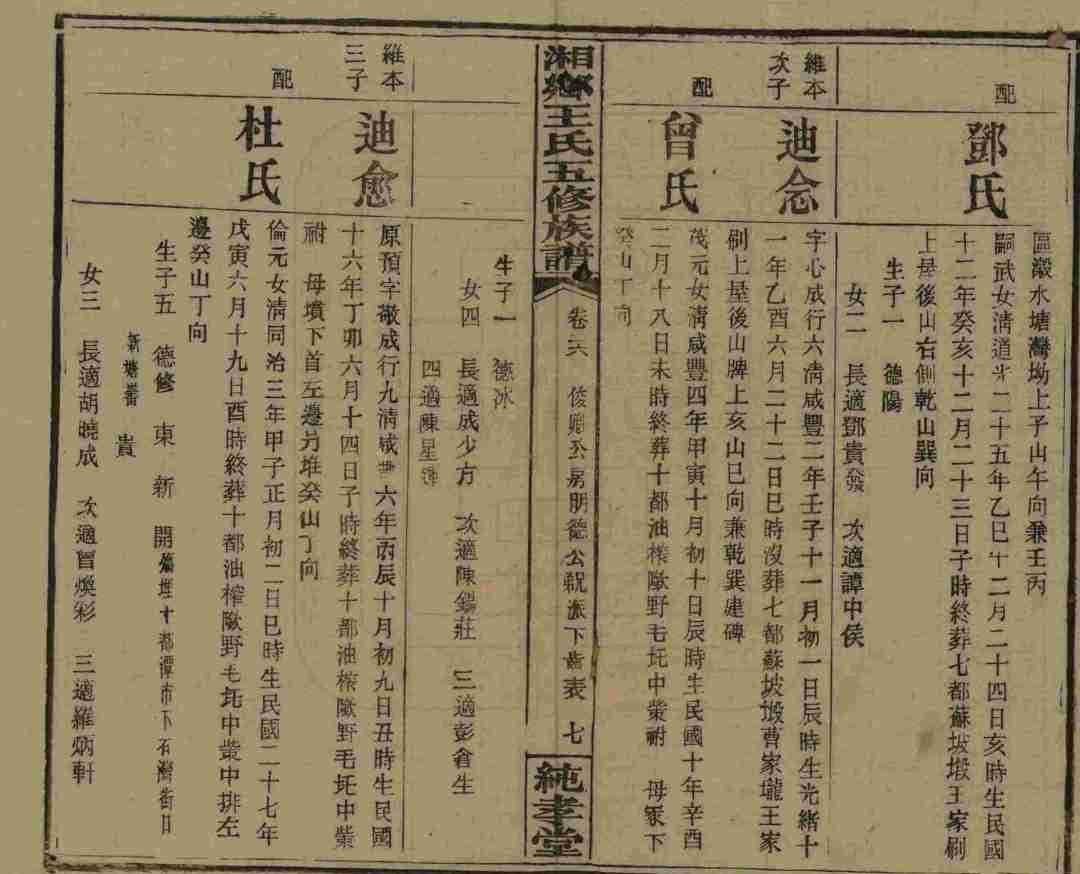 區瀫水塘灣坳上子山午向兼壬丙
配
鄧氏
嗣武女淸道光二十五年乙巳十二月二十四日亥時生民國
十二年癸亥十二月二十三日子時終葬七都蘇坡塅王家刷
上屋後山右側乾山巽向
生子一 德陽
女二 長適鄧貴發 次適譚中侯
維本
次子
迪念
字心成行六淸咸豐二年壬子十一月初一日辰時生光緒十
一年乙酉六月二十二日巳時沒葬七都蘇坡塅曹家壠王家
刷上屋後山牌上亥山巳向兼乾巽建碑
配
曾氏
茂元女淸咸豐四年甲寅十月初十日辰時生民國十年辛酉
二月十八日未時終葬十都油榨歐野毛圫中祡祔 母冢下
癸山丁向
湘鄉王氏五修族譜
卷 俊卿公房明德公 派下齒表 七
純孝堂
生子一 德冰
女四 長適成少方 次適陳錫莊 三適彭倉生
四適陳星
維本
三子
迪愈
原預字敬成行九淸咸豐六年丙辰十月初九日丑時生民國
十六年丁卯六月十四日子時終葬十都油榨歐野毛圫中祡
祔 母墳下首左邊方堆癸山丁向
配
杜氏
倫元女淸同治三年甲子正月初二日巳時生民國二十七年
戊寅六月十九日酉時終葬十都油榨歐野毛圫中祡中排左
邊癸山丁向
生子五 德修 東 新 開 十都潭市下石灣街
新塘 貴
女三 長適胡曉成 次適曾煥彩 三適羅炳軒